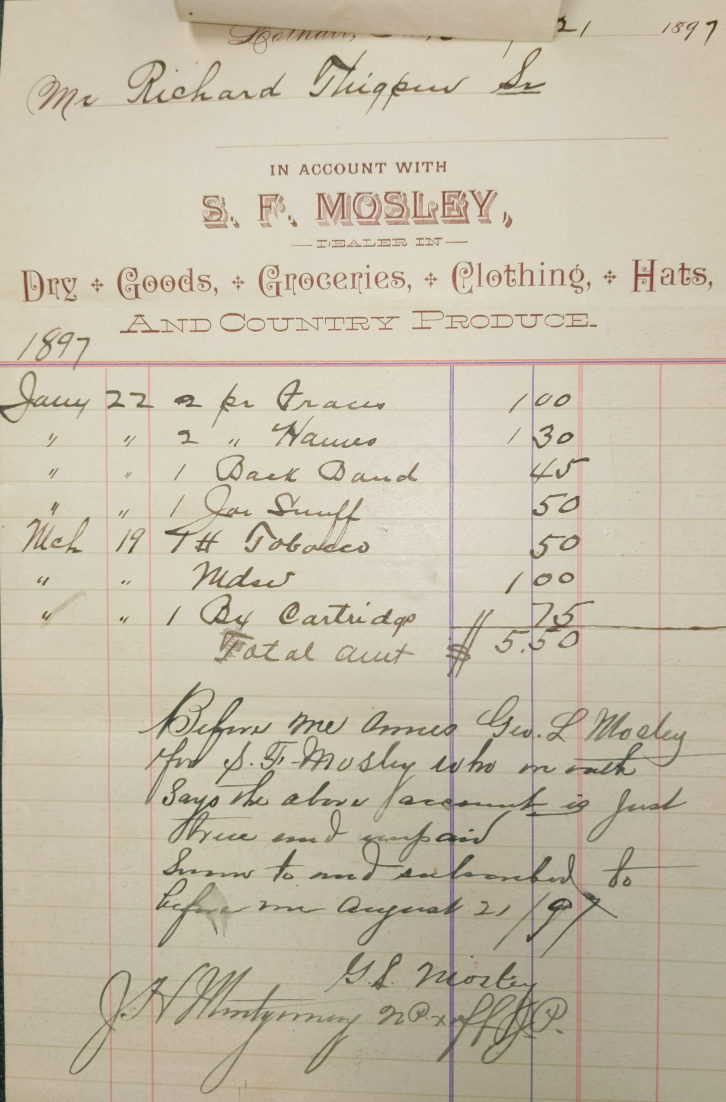 21 1897
Mr Richard Thigpen Sr
IN ACCOUNT WITH
S. F. MOSLEY,
DEALER IN
Dry Goods, Groceries, Clothing, Hats,
AND COUNTRY PRODUCE.
1897
Jany 22 2 pr Traces 1 00
" " 2 " Hames 1 30
" " 1 Back Band 45
" " 1 Jar Snuff 50
Mch 19 1 # Tobacco 50
" " Mdse 1 00
" " 1 Bx Cartridge 75
Total amt $ 5.50
Before me comes Geo. L Mosley
for S. F. Mosley who on oath
Says the above account is Just
true and unpaid
Sworn to and subscribed to
before me August 21/97
G L Mosley
J. H Montgomery N.P. x off J.P.